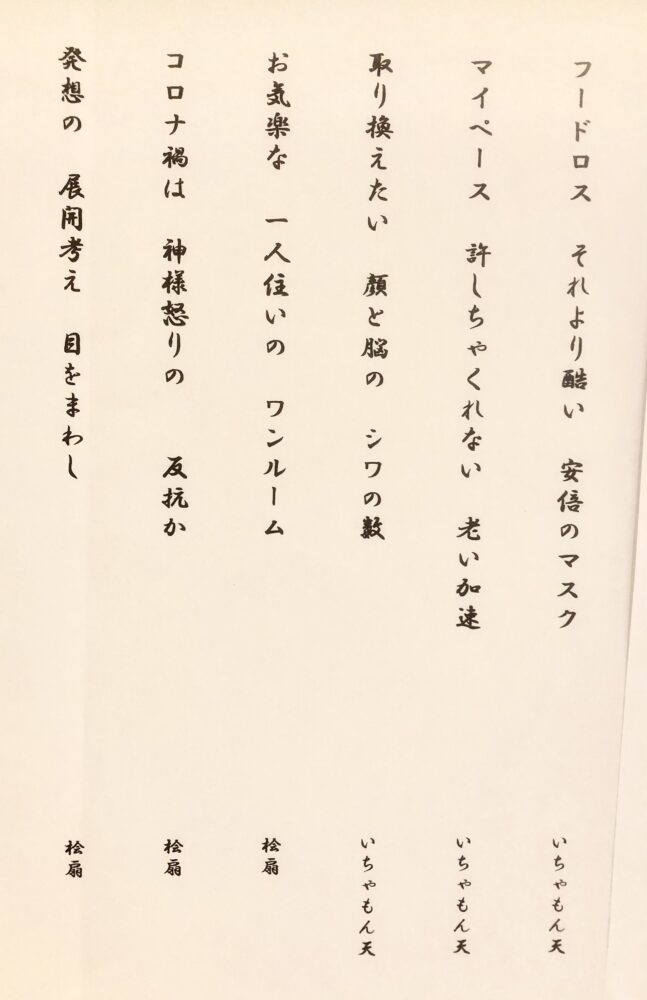 フードロス　それより酷い　安倍のマスク　いちゃもん天
マイペース　許しちゃくれない　老い加速　いちゃもん天
取り換えたい　顔と脳の　シワの数　いちゃもん天
お気楽な　一人住いの　ワンルーム　桧扇
コロナ禍は　神様怒りの　反抗か　桧扇
発想の　展開考え　目をまわし　桧扇